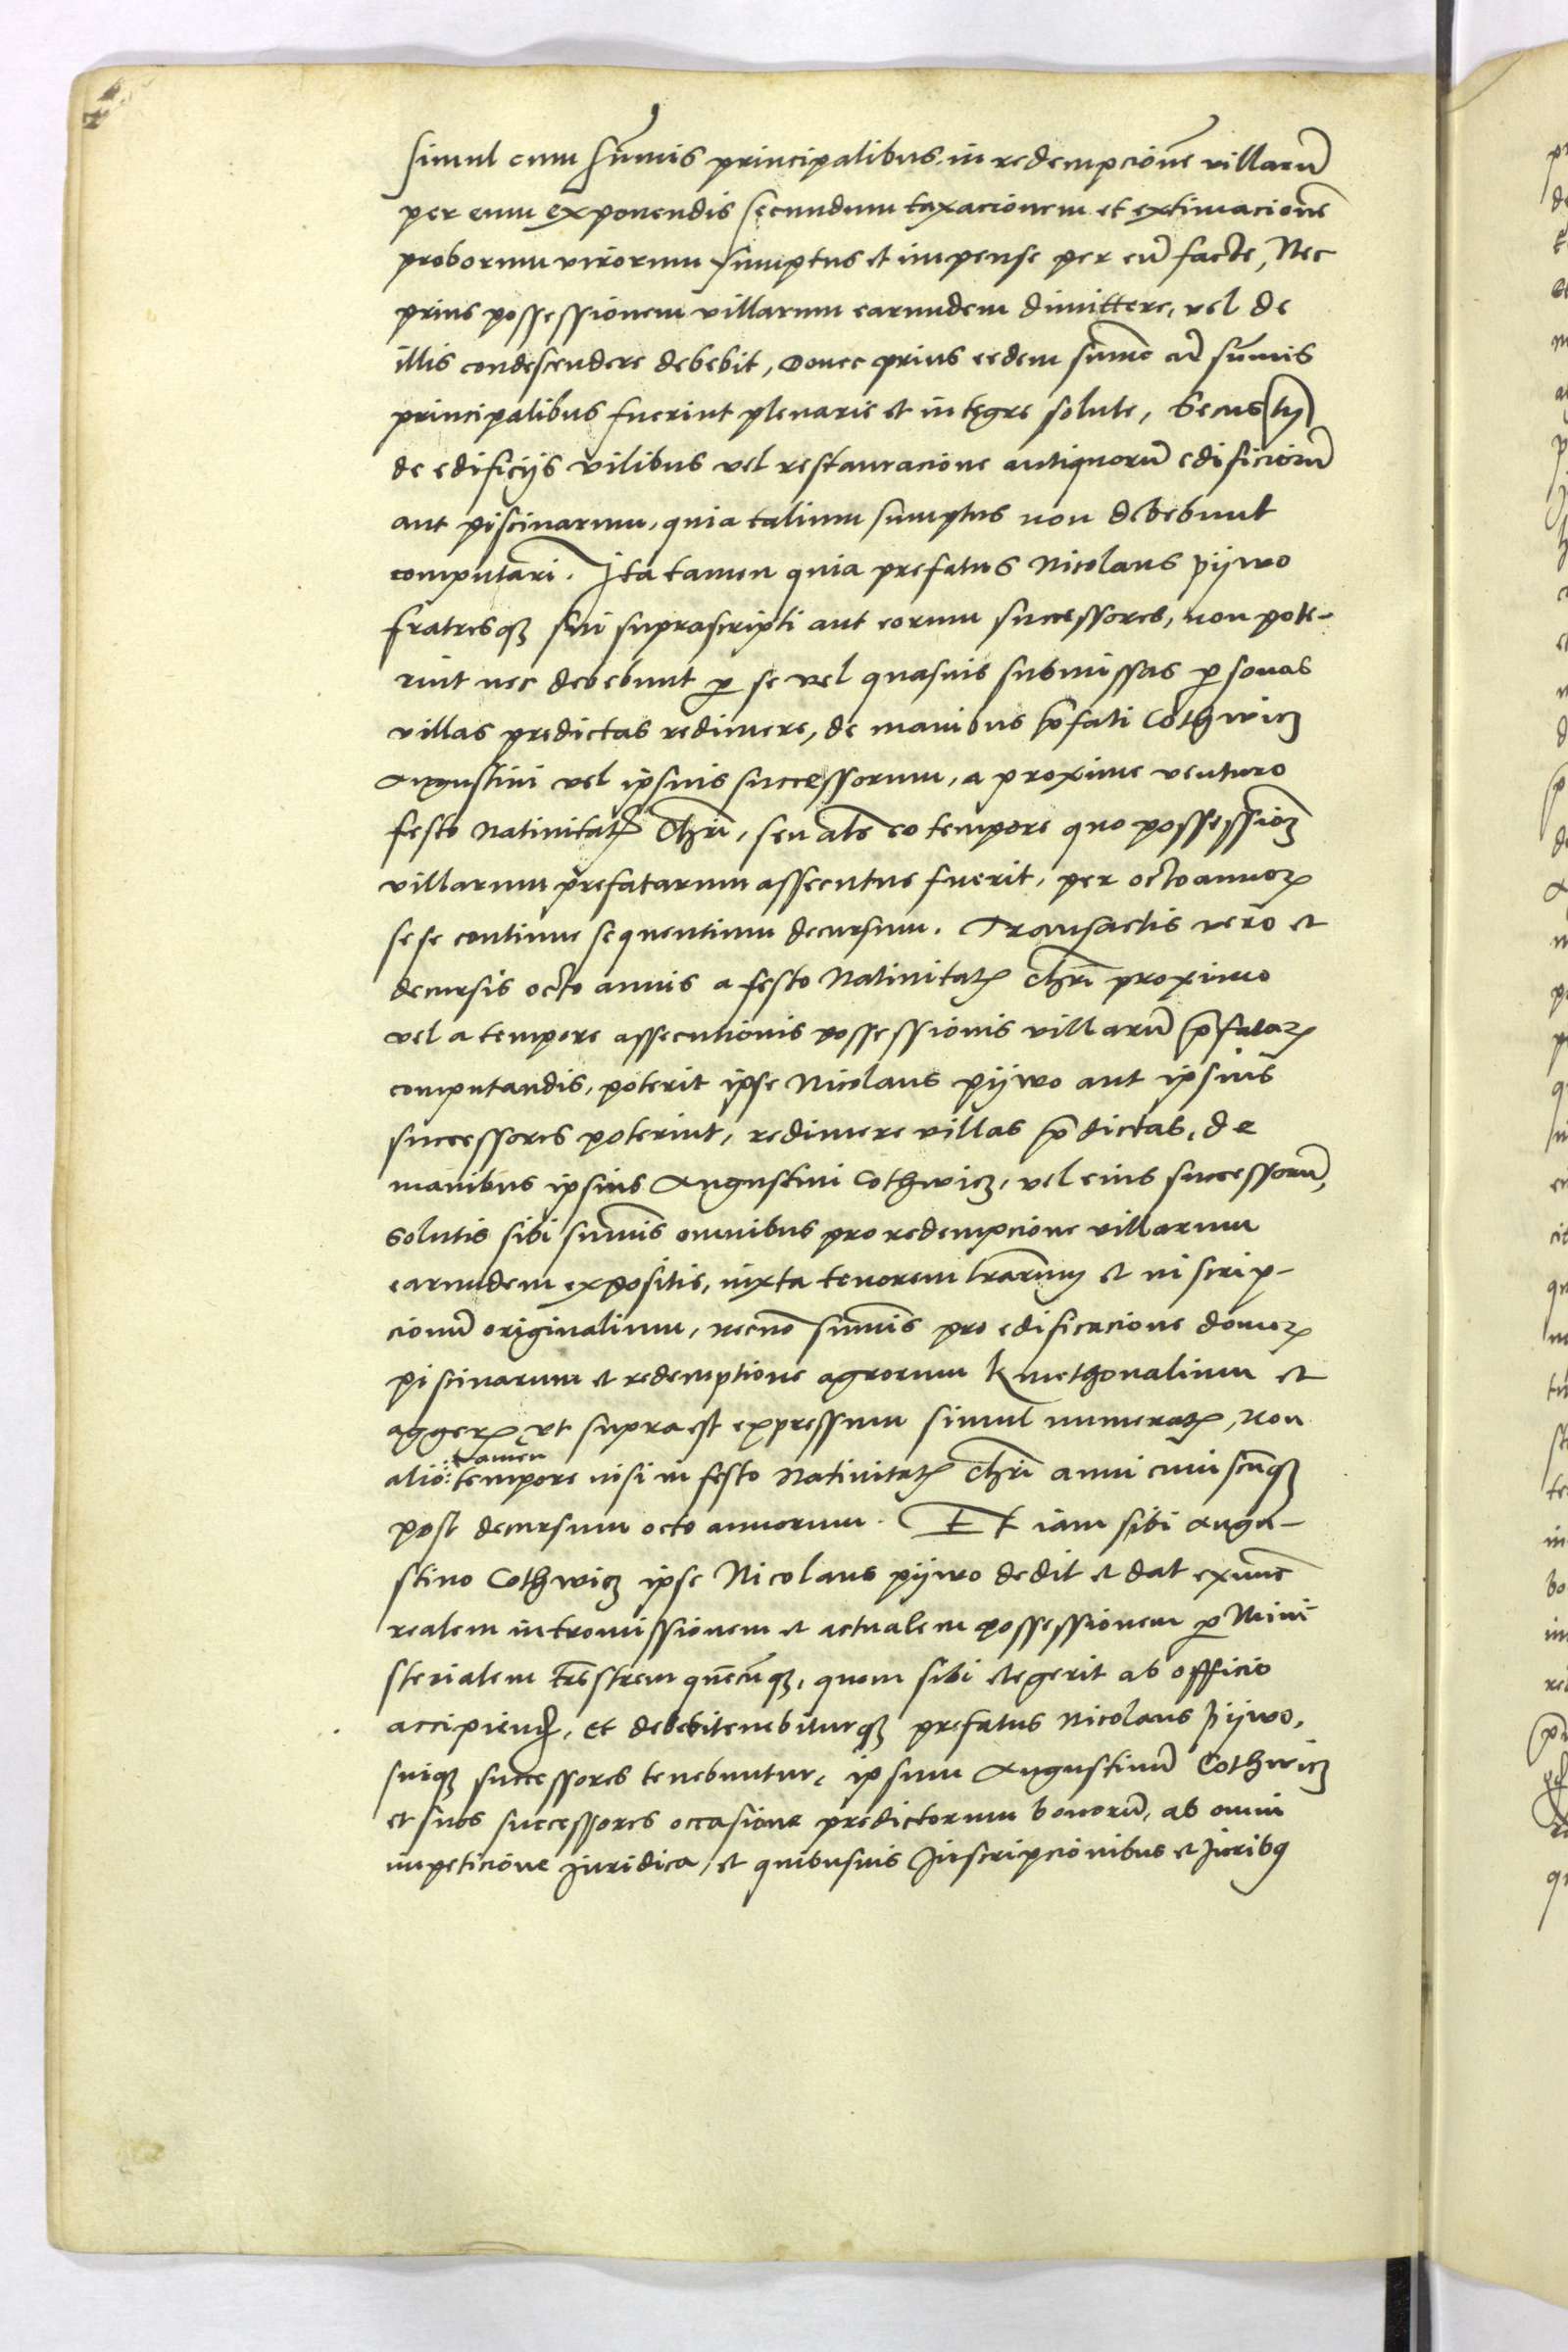 simul cum sūmis principalibus, in redempcionē villarū
per eum exponendis secundum taxacionem et extimacionē
proborum virorum sumptus et impense per eū facte, Nec
prius possessionem villarum earundem dimittere, vel de
illis condescendere debebit, Donec prius eedem sūme cū sūmis
principalibus fuerint plenarie et integre solute, Secus
de edificijs vilibus vel restauracione antiquorū edificiorū
aut piscinarum, quia talium sumptus non debebunt
computari. Ita tamen quia prefatus Nicolaus Pijwo
fratresqꝫ sui suprascripti aut eorum successores, non pote-
rint nec debebunt ꝑ se vel quasuis submissas ꝑsonas
villas predictas redimere, de manibus p̄fati Cothwicz
Augustini vel ipsius successorum, a proxime venturo
festo Natiuitatꝭ Chr̄i, seu ab eo tempore quo possessioꝫ
villarum prefatarum assecutus fuerit, per octo annoꝝ
sese continue sequentium decursum. Transactis vero et
decursis octo annis a festo Natiuitatꝭ Chr̄i proximo
vel a tempore assecutionis possessionis villarū p̄fataꝝ
computandis, poterit ipse Nicolaus pijwo aut ipsius
successores poterint, redimere villas p̄dictas, de
manibus ipsius Augustini Cothwicz, vel eius successorū,
solutis sibi sūmis omnibus pro redempcione villarum
earundem expositis, iuxta tenorem lr̄arum et inscrip-
cionū originalium, necnō sūmis pro edificacione domoꝝ
piscinarum et redemptione agrorum kmethonalium et
aggerꝝ vt supra est expressum simul numeratꝭ, non
alio tamen tempore nisi in festo Natiuitatꝭ Chr̄i anni cuiuscūqꝫ
post decursum octo annorum. Et iam sibi Augu-
stino Cothwicz ipse Nicolaus pijwo dedit et dat exnūc
realem intromissionem et actualem possessionem ꝑ Mini
sterialem tr̄estrem quēcūqꝫ, quem sibi elegerit ab officio
accipiend, Et debebit tenebiturqꝫ prefatus Nicolaus Pijwo,
suiqꝫ successores tenebuntur, ipsum Augustinū Cothwicz
et suos successores occasione predictorum bonorū, ab omni
impeticione Juridica, et quibusuis Inscripcionibus et Juribꝫ